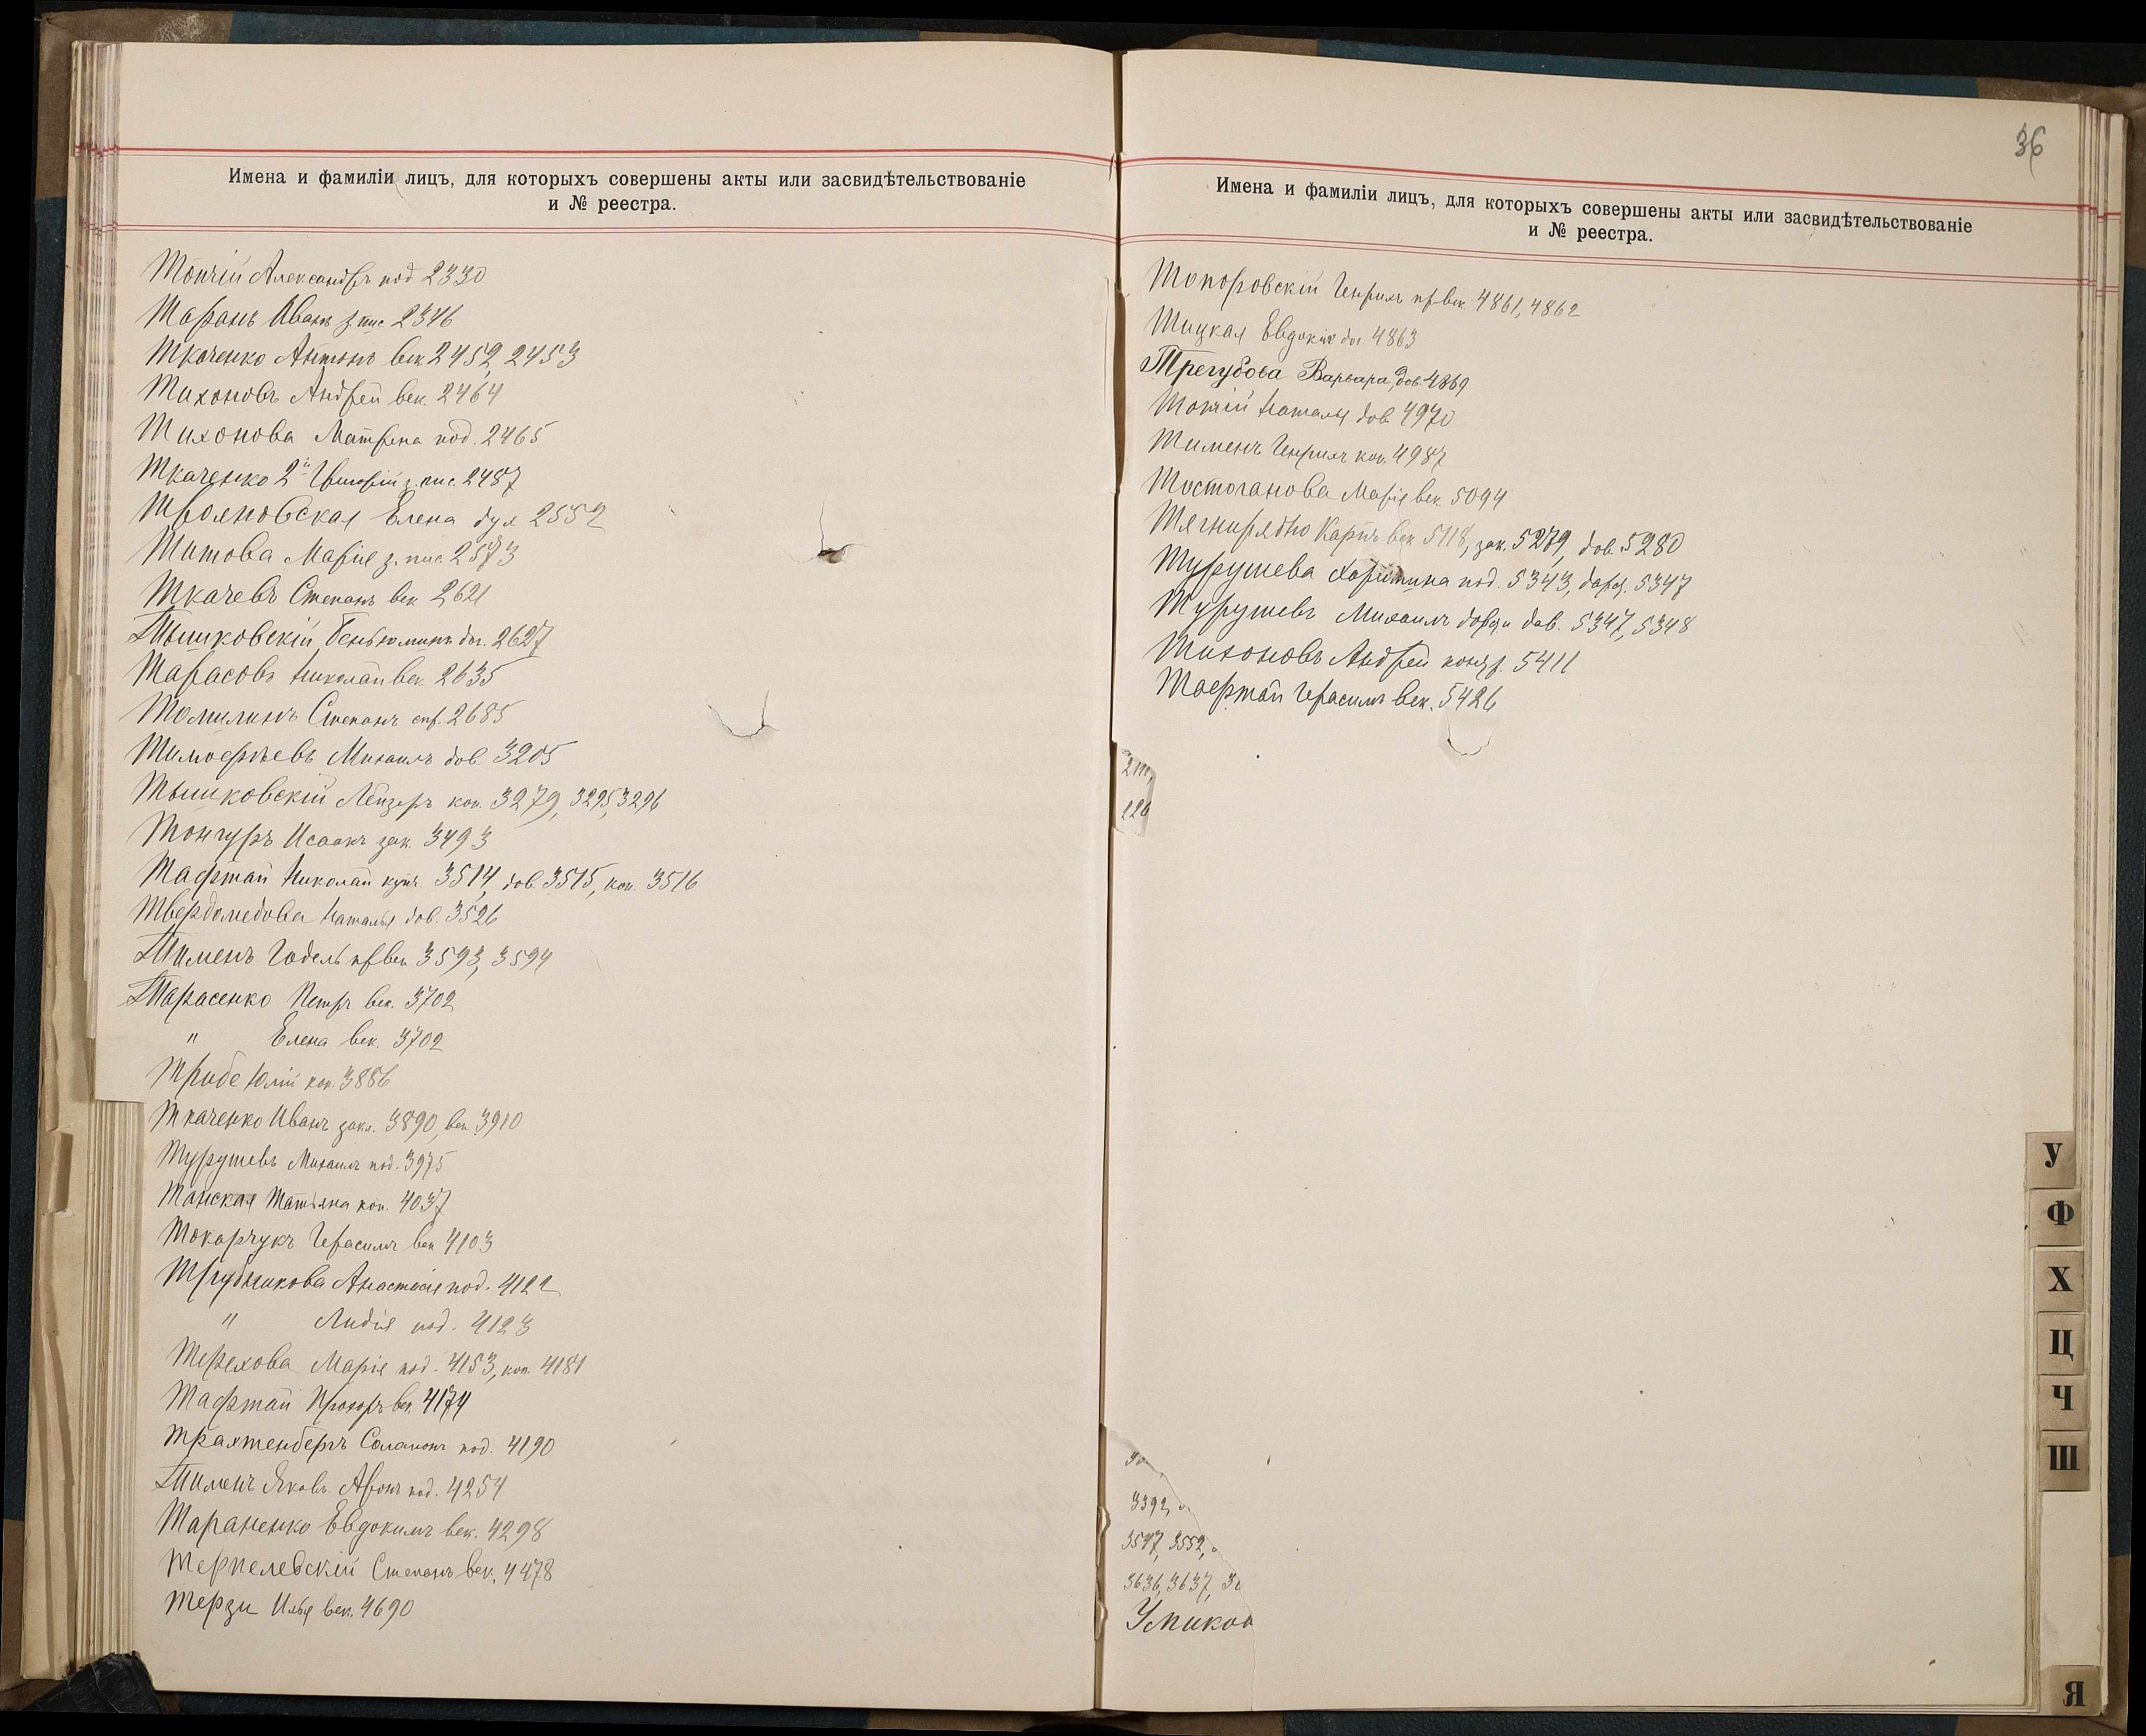 Имена и фамиліи лицъ, для которыхъ совершены акты или засвидѣтельствованіе
и № реестра.
Топчій Александръ под 2330
Таранъ Иванъ з. пис 2346
Ткаченко Антонъ век 2452, 2453
Тихоновъ Андрей век. 2464
Тихонова Матрена под. 2465
Ткаченко 2й Григорій з. пис. 2487
Трояновская Елена дух 2552
Титова Марія з. пис. 2573
Ткачевъ Степанъ век 2621
Тышковскій Беньюминъ дог. 2627
Тарасовъ Николай век 2635
Томилинъ Степанъ 2685
Тимофѣевъ Михаилъ дов. 3205
Тышковскій Лейзеръ коп. 3279, 3295, 3296
Тонгуръ Исаакъ зак. 3493
Тафтай Николай купч. 3514, дов. 3515, коп. 3516
Твердомедова Наталья дов. 3526
Тименъ Годель пр век 3593, 3594
Тарасенко Петръ век. 3702
" Елена век. 3702
Трибе Юлій коп. 3886
Ткаченко Иванъ закл. 3890, век. 3910
Турушевъ Михаилъ под. 3975
Танская Татьяна коп. 4037
Токарчукъ Герасимъ век 4103
Трубникова Анастасія под. 4122
" Лидія под. 4123
Терехова Марія под. 4153, коп. 4181
Тафтай Прохоръ век. 4174
Трахтенбергъ Соломонъ под. 4190
Тименъ Яковъ Аронъ под. 4254
Тараненко Евдокимъ век. 4298
Терпелевскій Степанъ век. 4478
Терзи Илья век. 4690
36
Имена и фамиліи лицъ, для которыхъ совершены акты или засвидѣтельствованіе
и № реестра.
Топоровскій Генрихъ пр век. 4861, 4862
Тицкая Евдокія дог 4863
Трегубова Варвара, дов. 4869
Топчій Наталья дов 4970
Тименъ Генрихъ коп. 4987
Тостоганова Марія век 5094
Тягнирядно Карпъ век 5118, зак. 5279, дов. 5280
Турушева Харитина под. 5343, 5347
Турушевъ Михаилъ дов. 5347, 5348
Тихоновъ Андрей 5411
Тафтай Герасимъ век. 5426
226
3392,
3547, 3552,
3636, 3637,
Умиков
У
Ф
Х
Ц
Ч
Ш
Я